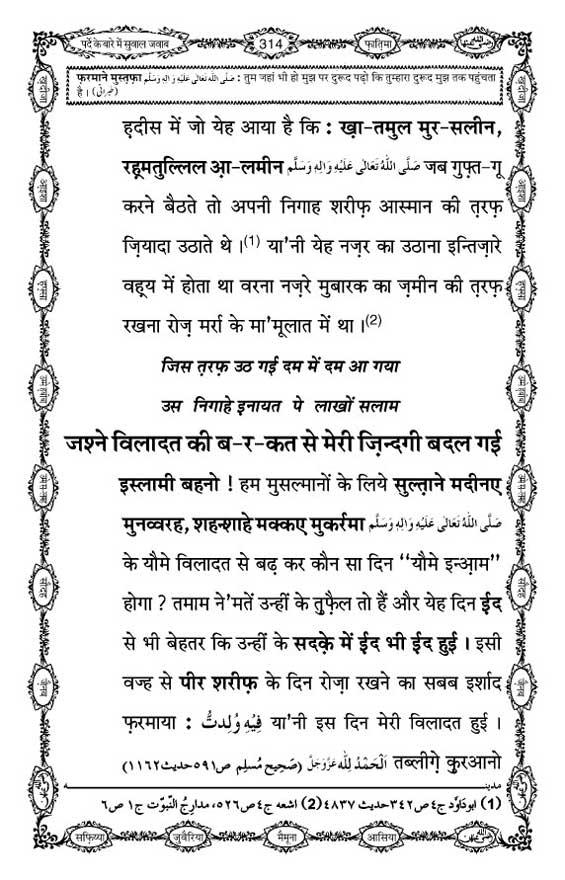 पर्दे के बारे में सुवाल जवाब
314
फ़ातिमा
फ़रमाने मुस्तफ़ा صَلَّى اللهُ تَعَالٰى عَلَيْهِ وَاٰلِهٖ وَسَلَّم : तुम जहां भी हो मुझ पर दुरूद पढ़ो कि तुम्हारा दुरूद मुझ तक पहुंचता
है । (طبرانی)
ह़दीस में जो येह आया है कि : ख़ा-तमुल मुर-सलीन,
रह़मतुल्लिल आ़-लमीन صَلَّى اللهُ تَعَالٰى عَلَيْهِ وَاٰلِهٖ وَسَلَّم जब गुफ़्त-गू
करने बैठते तो अपनी निगाह शरीफ़ आस्मान की त़रफ़
ज़ियादा उठाते थे ।(1) या'नी येह नज़र का उठाना इन्तिज़ारे
वह़्य में होता था वरना नज़रे मुबारक का ज़मीन की त़रफ़
रखना रोज़ मर्रा के मा'मूलात में था ।(2)
जिस त़रफ़ उठ गई दम में दम आ गया
उस निगाहे इनायत पे लाखों सलाम
जश्ने विलादत की ब-र-कत से मेरी ज़िन्दगी बदल गई
इस्लामी बहनो ! हम मुसल्मानों के लिये सुल्त़ाने मदीनए
मुनव्वरह, शहन्शाहे मक्कए मुकर्रमा صَلَّى اللهُ تَعَالٰى عَلَيْهِ وَاٰلِهٖ وَسَلَّم
के यौमे विलादत से बढ़ कर कौन सा दिन ‘‘यौमे इन्आ़म’’
होगा ? तमाम ने'मतें उन्हीं के त़ुफ़ैल तो हैं और येह दिन ईद
से भी बेहतर कि उन्हीं के सदक़े में ईद भी ईद हुई । इसी
वज्ह से पीर शरीफ़ के दिन रोज़ा रखने का सबब इर्शाद
फ़रमाया : فِيْهِ وُلِدتُّ या'नी इस दिन मेरी विलादत हुई ।
(صَحِيح مُسلِم ص٥٩١حديث١١٦٢) اَلْحَمْدُ لِلّٰه عَزَّوَجَلَّ तब्लीग़े क़ुरआनो
مدينه
(1) ابوداؤد ج٤ ص٣٤٢حديث ٤٨٣٧ (2) اشعه ج٤ص٥٢٦، مدارجُ النّبوّت ج١ ص٦
सफ़िय्या
जुवैरिया
मैमूना
आसिया